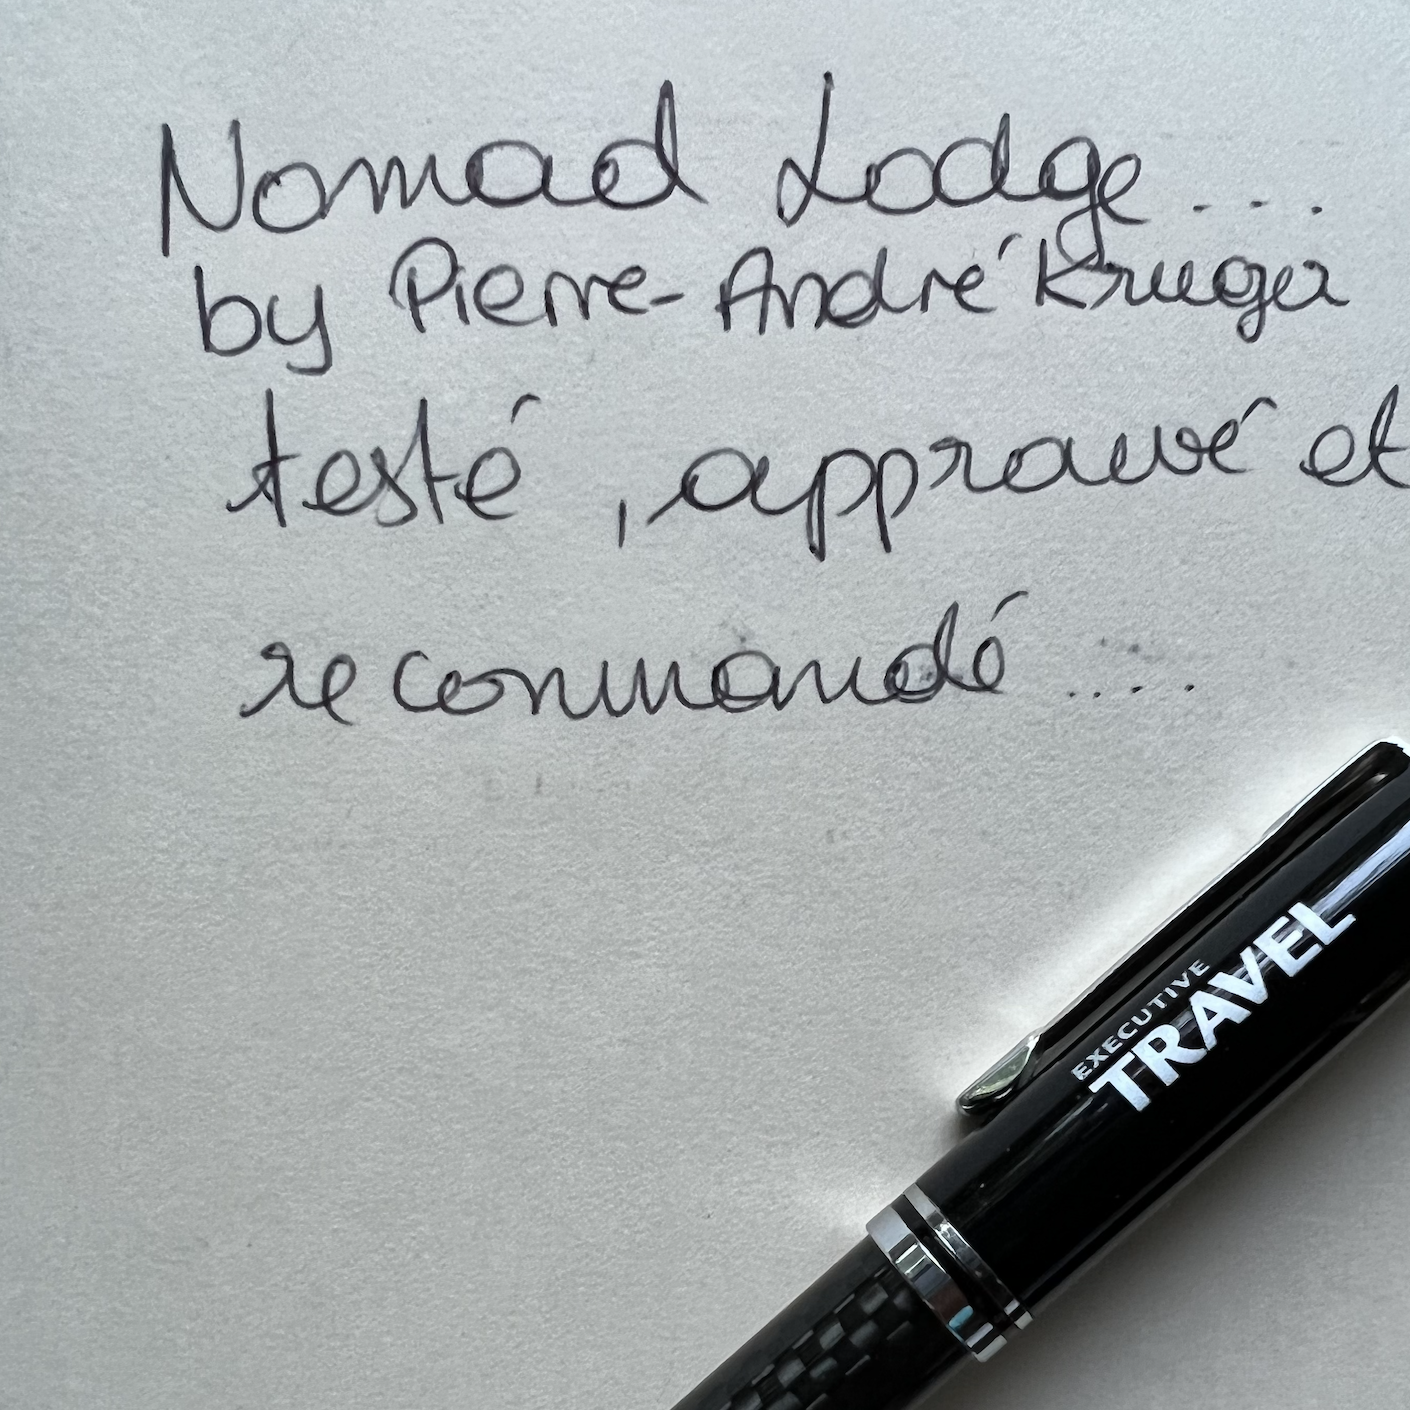 Nomad Lodge...
by Pierre-André Krueger
testé, approuvé et
recommandé....
EXECUTIVE
TRAVEL